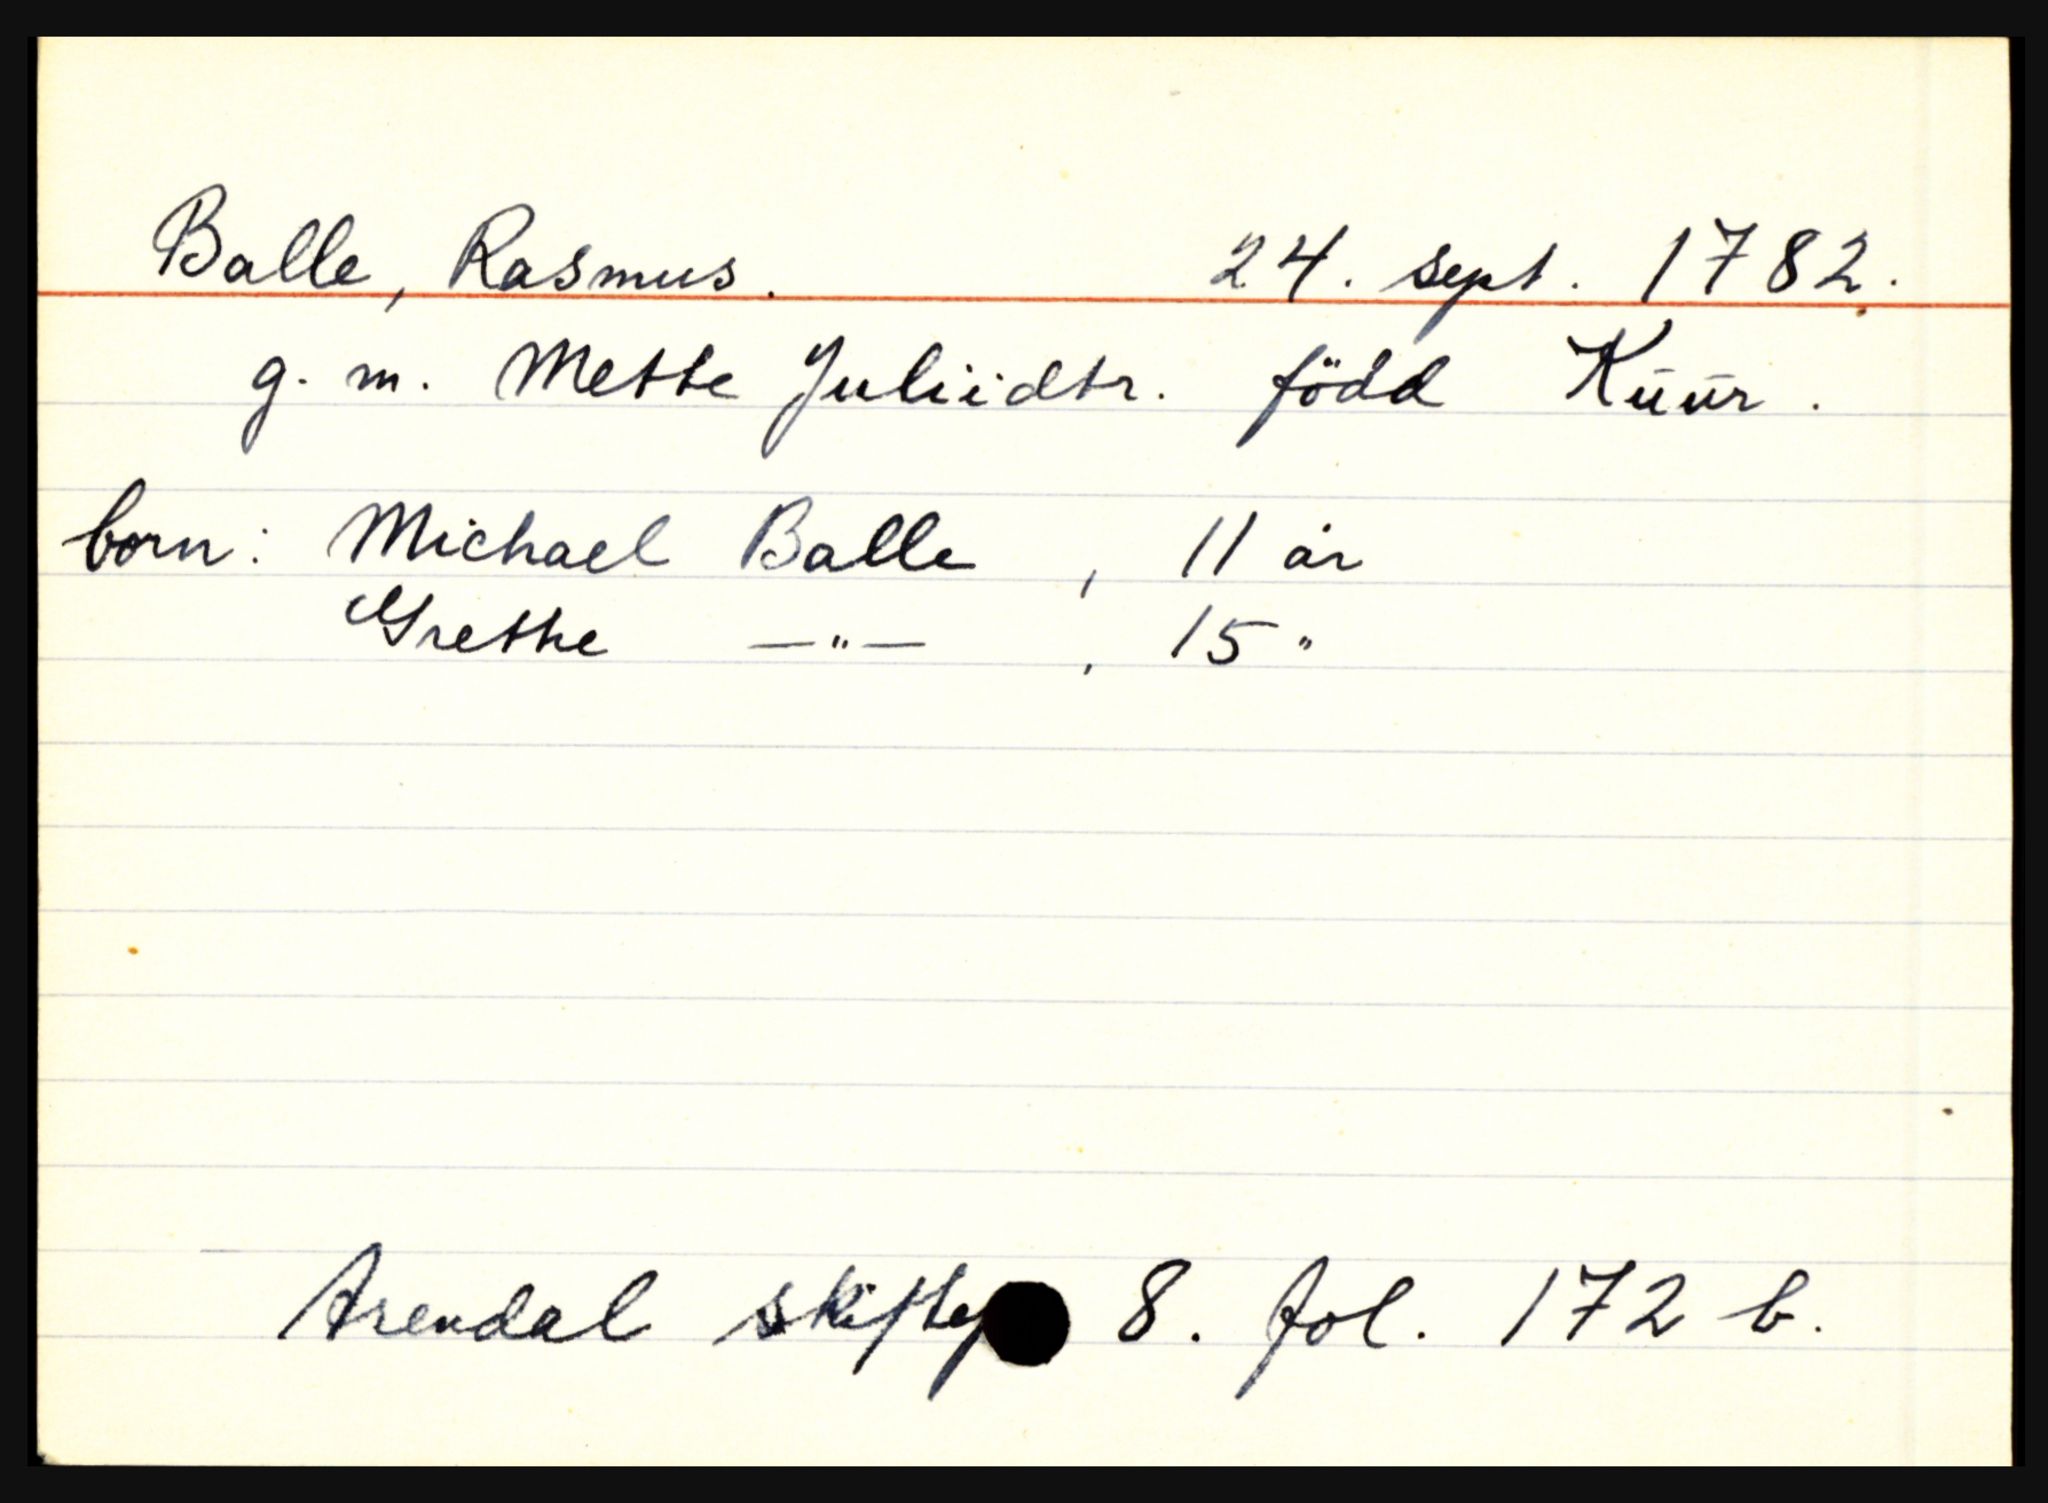 Balle, Rasmus. 24. sept. 1782.
g. m. Mette Juliidtr. född Kuur.
born: Michael Balle, 11 år
Grethe —"—, 15 "
Arendal 8. fol. 172 b.